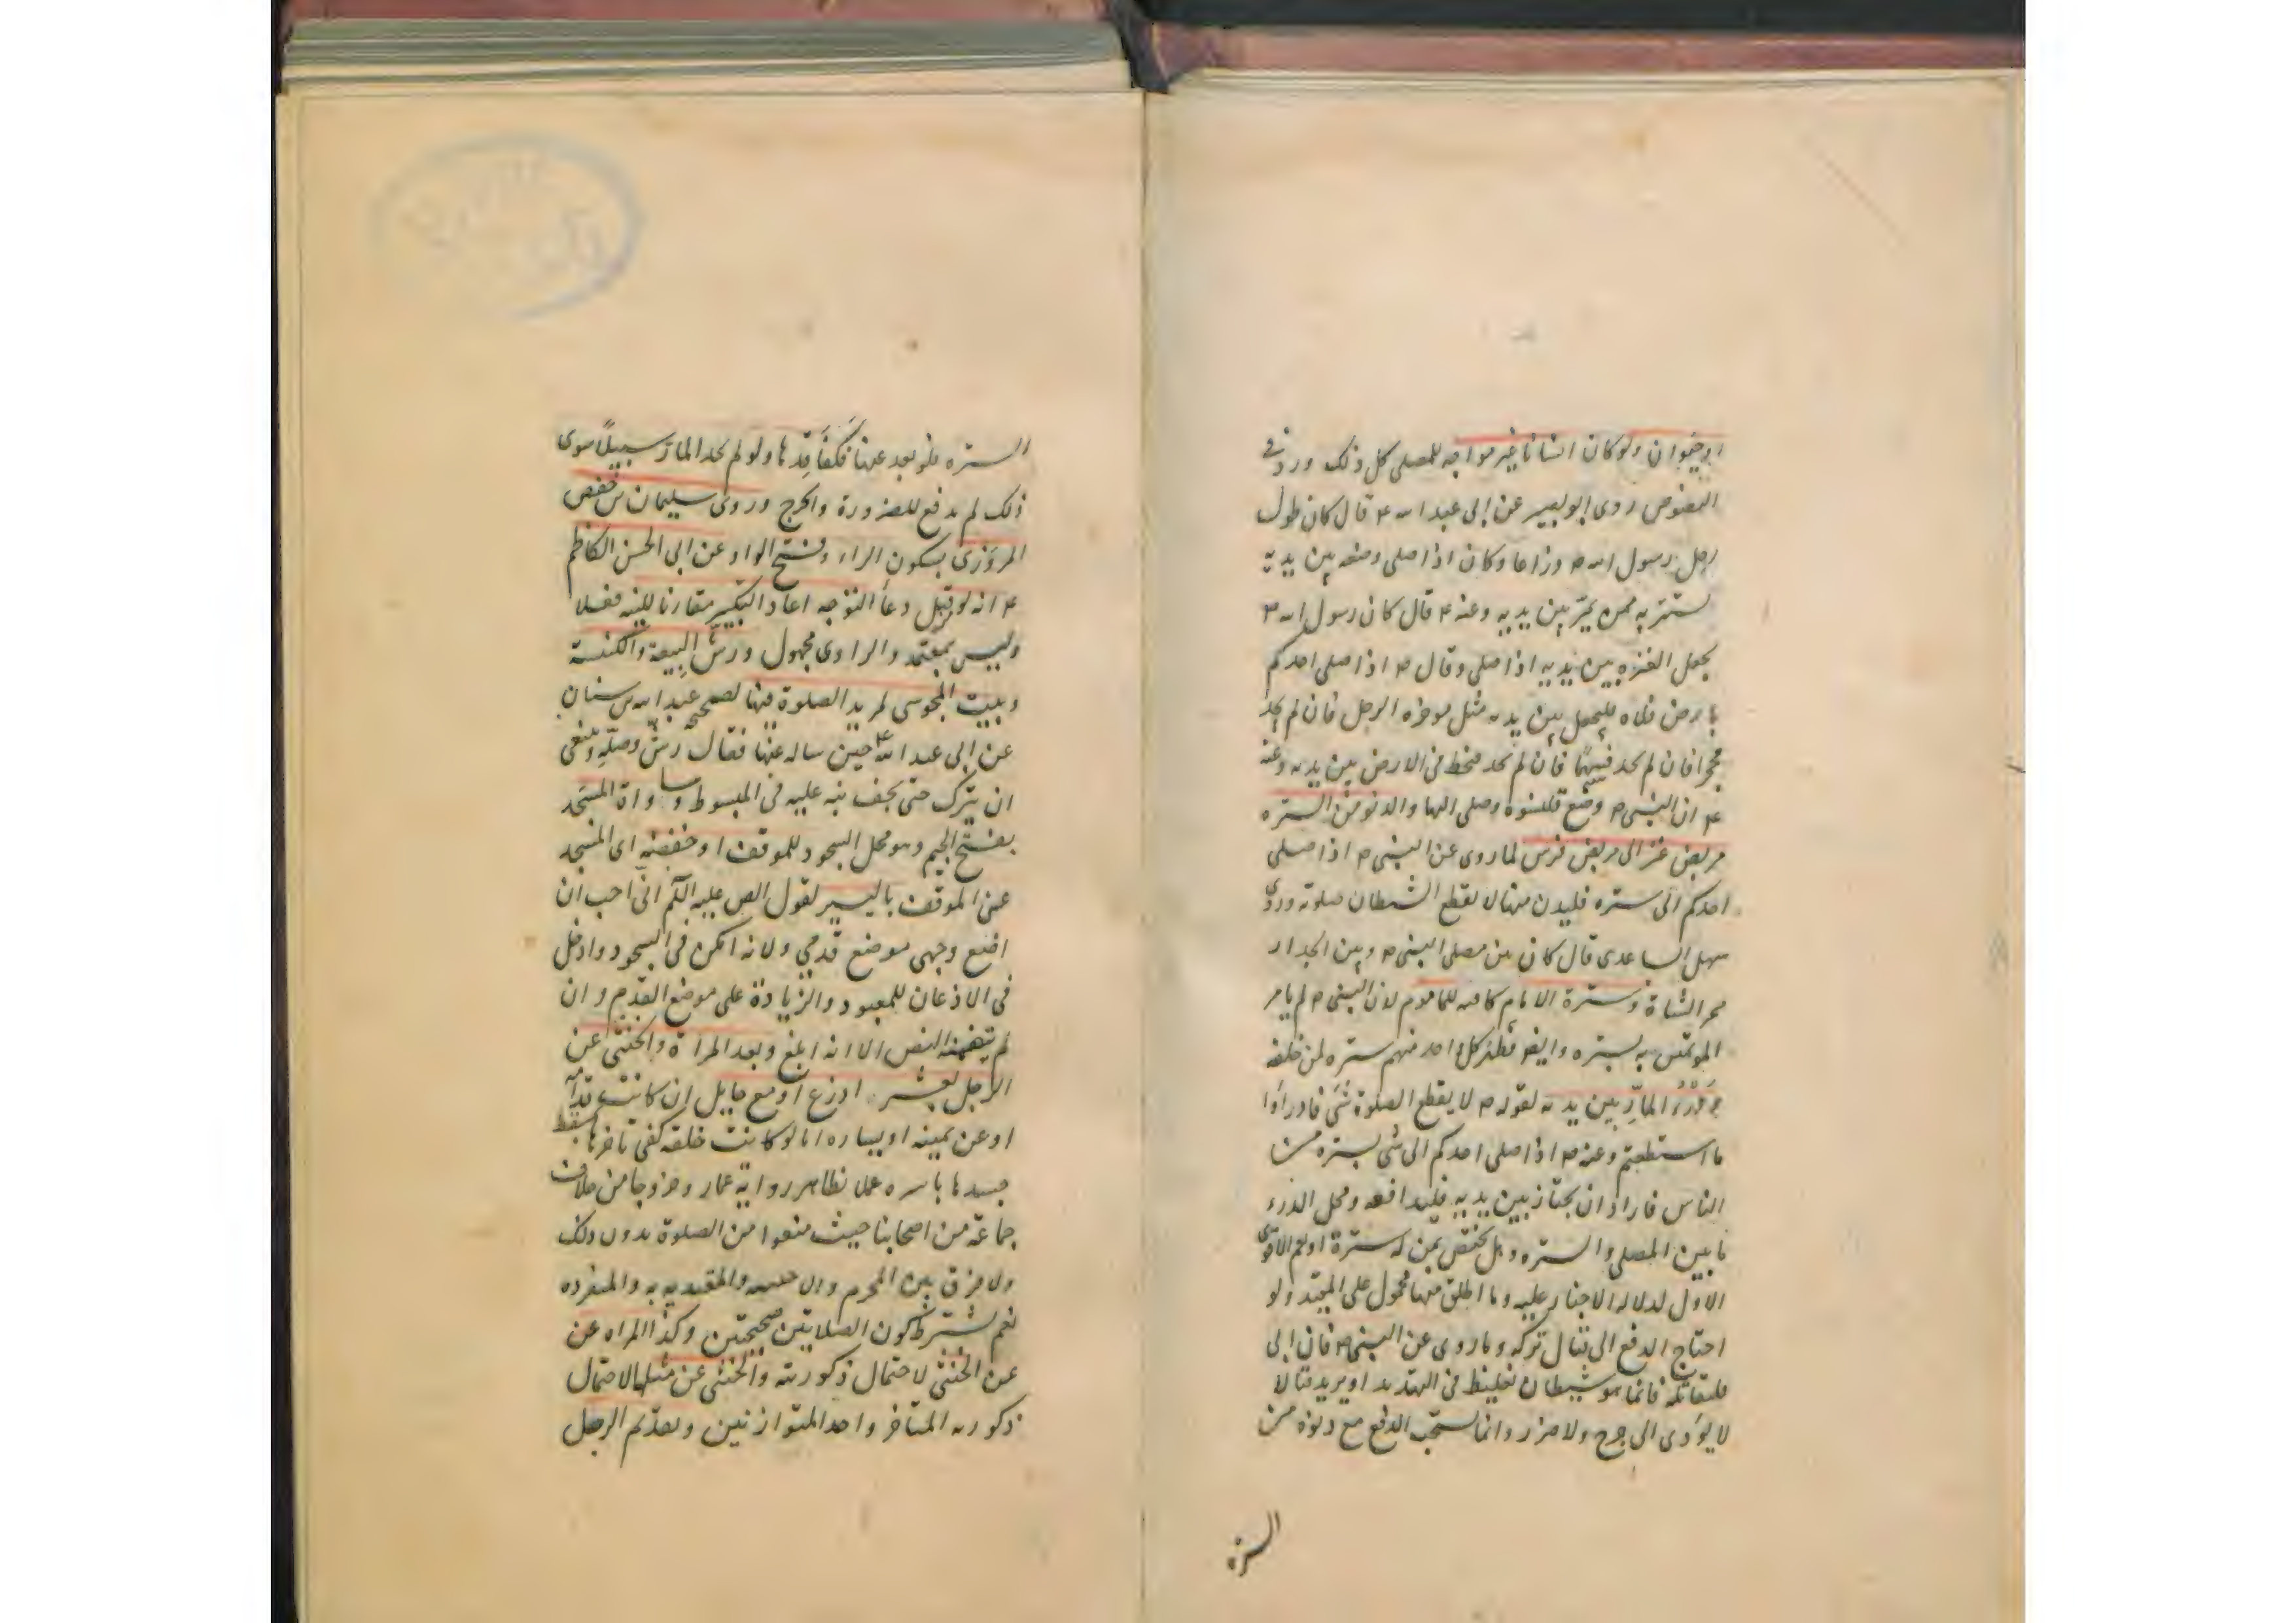 او حيوان ولو كان انسانا غير مواجه للمصلى كل ذلك ورد فى
النصوص روى ابو بصير عن ابى عبد الله ع قال كان طول
رحل رسول الله ص ذراعا وكان اذا صلى وضعه بين يديه
يستتر به ممن يمر بين يديه وعنه ع قال كان رسول الله ص
يجعل العنزه بين يديه اذا صلى وقال ص اذا صلى احدكم
بارض فلاه فليجعل بين يديه مثل موخره الرحل فان لم يجد
فحجرا فان لم يجد فسهما فان لم يجد فيخط فى الارض بين يديه وعنه
ع ان النبى ص وضع قلنسوه وصلى اليها والدنو من الستره
مربض عنز الى مربض فرس لما روى عن النبى ص اذا صلى
احدكم الى ستره فليدن منها لا يقطع الشيطان صلوته وروى
سهل الساعدى قال كان بين مصلى النبى ص وبين الجدار
ممر الشاة وسترة الامام كافيه للماموم لان النبى ص لم يامر
الموتمين به بستره وايضا فظهر كل احد منهم ستره لمن خلفه
ودرء المار بين يديه لقوله ص لا يقطع الصلوة شى فادراوا
ما استطعتم وعنه ص اذا صلى احدكم الى شى يستره من
الناس فاراد ان يجتاز بين يديه فليدافعه ومحل الدرء
ما بين المصلى والستره وهل يختص بمن له سترة او يعم الاقوى
الاول لدلاله الاخبار عليه وما اطلق منها محمول على المقيد ولو
احتاج الدفع الى قتال تركه وما روى عن النبى ص فان ابى
فليقاتله فانما هو شيطان تغليظ فى التهديد او يريد قتالا
لا يؤدى الى جرح ولا ضرر وانما يستحب الدفع مع دنوه من
الستره
الستره فلو بعد عنها فكفاقدها ولو لم يجد المار سبيلا سوى
ذلك لم يدفع للضرورة والحرج وروى سليمان بن حفص
المروزى بسكون الراء وفتح الواو عن ابى الحسن الكاظم
ع انه لو قبل دعا التوجه اعاد التكبير مقارنا للنيه فعلا
وليس بمعتمد والراوى مجهول ورش البيعة والكنسة
وبيت المجوسى لمريد الصلوة فيها لصحيحه عبد الله بن سنان
عن ابى عبد الله ع حين ساله عنها فقال رش وصله وينبغى
ان يترك حتى يجف نبه عليه فى المبسوط ومساواة المسجد
بفتح الجيم وهو محل السجود للموقف او خفضه اى المسجد
عن الموقف باليسير لقول الص عليه السلم انى احب ان
اضع وجهى موضع قدمى ولانه امكن فى السجود وادخل
فى الاذعان للمعبود والزيادة على موضع القدم وان
لم يتضمنه النص الا انه ابلغ وبعد المراة والخنثى عن
الرجل بعشر اذرع او مع حايل ان كانت قدامه
او عن يمينه او يساره اما لو كانت خلفه كفى تاخرها بسقط
جسدها باسره عملا بظاهر رواية عمار وخروجا من خلاف
جماعة من اصحابنا حيث منعوا من الصلوة بدون ذلك
ولا فرق بين المحرم والاجنبيه والمقتديه به والمنفرده
نعم يشترط كون الصلاتين صحيحتين وكذا المراه عن
عن الخنثى لاحتمال ذكوريته والخنثى عن مثلها لاحتمال
ذكوريه المتاخر واحد المتوازنين وبعد ثم الرجل